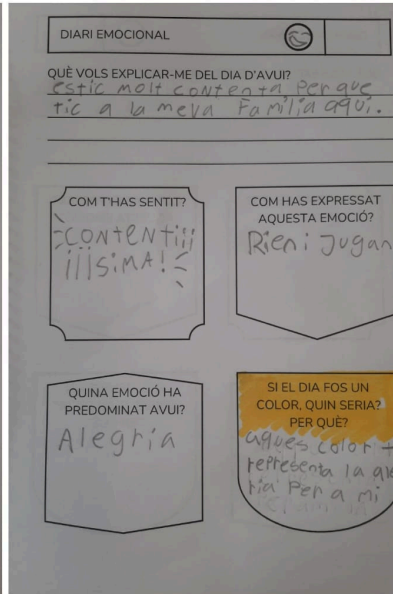 DIARI EMOCIONAL
QUÈ VOLS EXPLICAR-ME DEL DIA D'AVUI?
estic molt contenta perque
tic a la meva Familia aqui.
COM T'HAS SENTIT?
CONtENtiii
iiiSiMA!
COM HAS EXPRESSAT
AQUESTA EMOCIÓ?
Rien i Jugan
QUINA EMOCIÓ HA
PREDOMINAT AVUI?
Alegria
SI EL DIA FOS UN
COLOR, QUIN SERIA?
PER QUÈ?
aques color
representa la ale
ria Per a mi